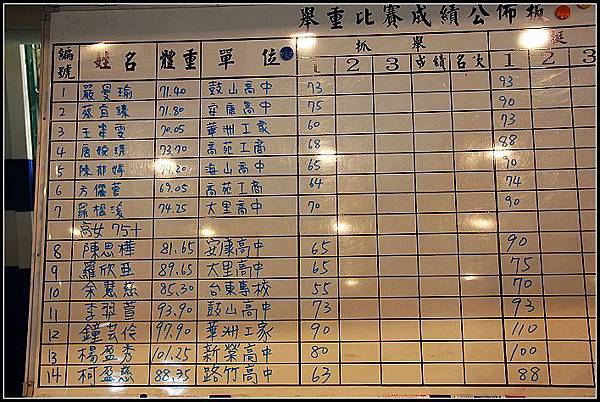 舉重比賽成績公佈板
編號 姓名 體重 單位 抓舉 挺
1 2 3 成績 名次 1 2 3
1 嚴曼瑜 71.40 鼓山高中 73 93
2 蔡宜臻 71.80 安康高中 75 90
3 王 雯 70.05 華洲工家 60 73
4 唐婉 73.70 高苑工商 68 88
5 陳郁婷 74.20 海山高中 65 70
6 方儒萱 69.05 高苑工商 64 74
7 羅 浚 74.25 大里高中 70 90
高女 75+
8 陳思樺 81.65 安康高中 65 90
9 羅欣亞 89.65 大里高中 65 75
10 余慧慈 85.30 台東專校 55 70
11 李羿萱 93.90 鼓山高中 73 93
12 鐘芸伶 97.90 華洲工家 90 110
13 楊盈秀 101.25 新榮高中 80 100
14 柯盈慈 88.35 路竹高中 63 88